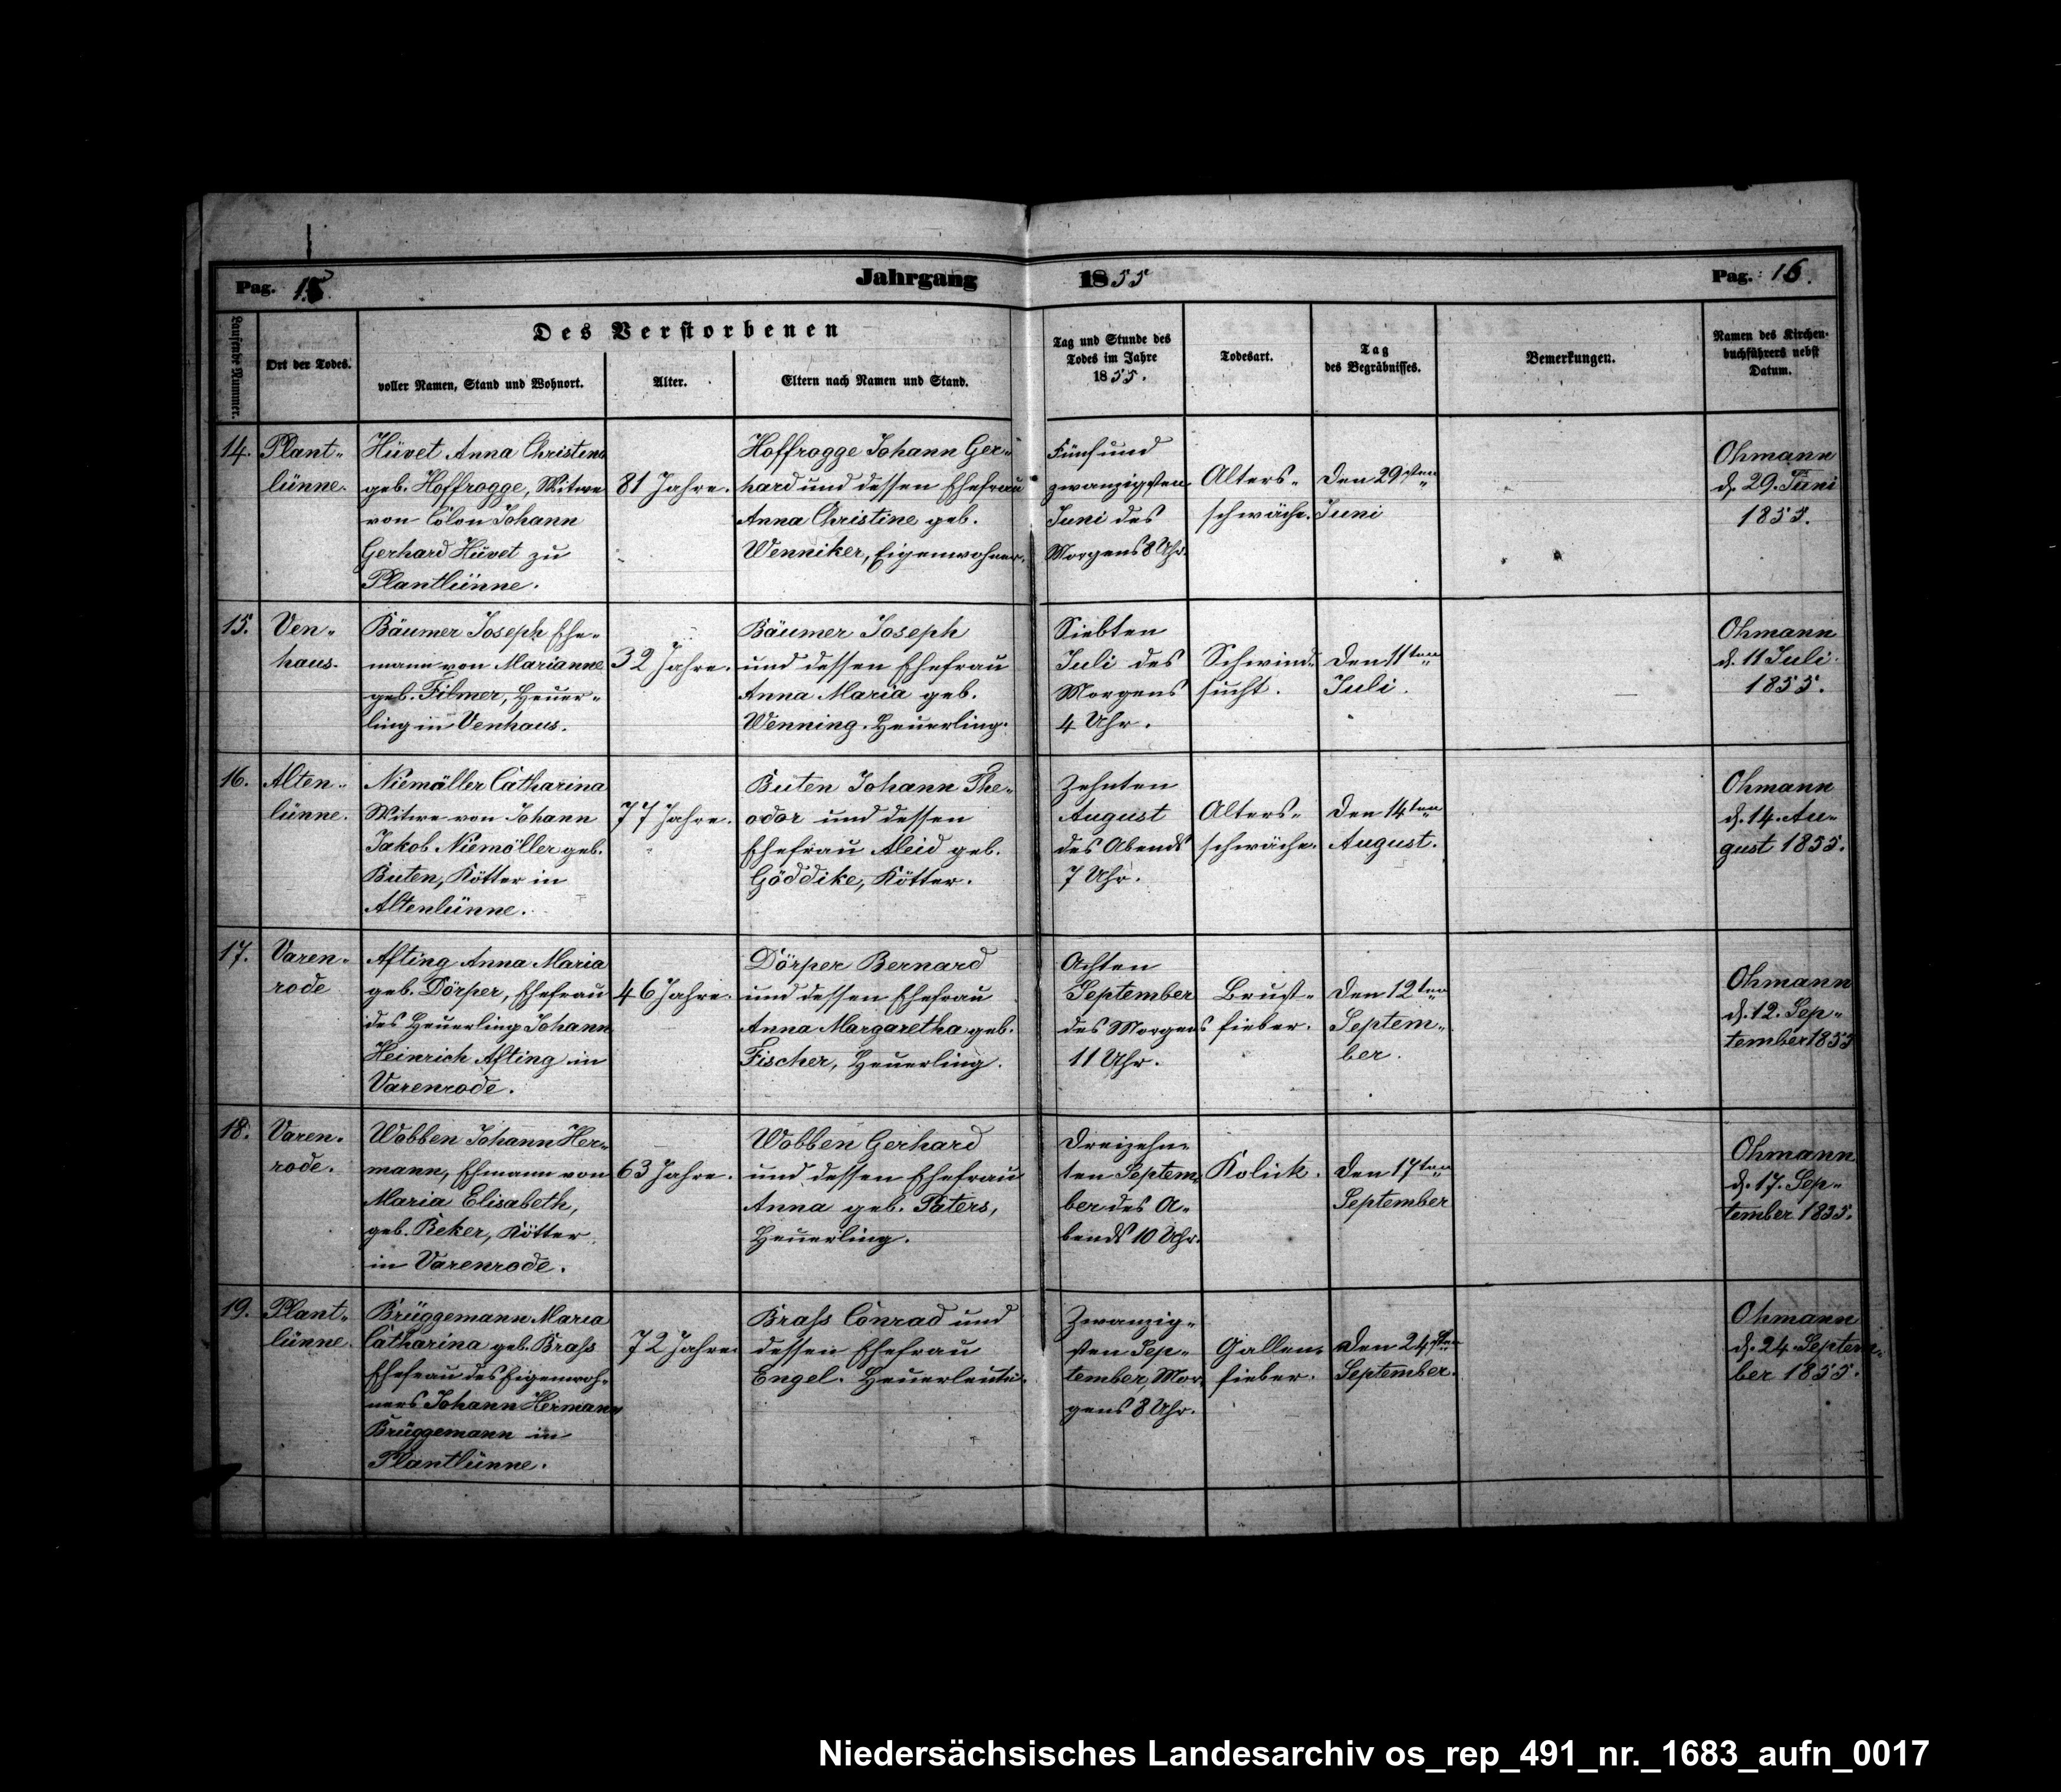 Pag. 15
Jahrgang 1855
Pag. 16.
Laufende Nummer.
Ort der Todes.
Des Verstorbenen
voller Namen, Stand und Wohnort.
Alter.
Eltern nach Namen und Stand.
Tag und Stunde des
Todes im Jahre
1855.
Todesart.
Tag
des Begräbnisses.
Bemerkungen.
Namen des Kirchen-
buchführers nebst
Datum.
14.
Plant-
lünne.
Hüvet Anna Christena
geb. Hoffrogge, Witwe
von Colon Johann
Gerhard Hüvet zu
Plantlünne.
81 Jahre.
Hoffrogge Johann Ger-
hard und dessen Ehefrau
Anna Christine geb.
Wenniker, Eigenwohner.
Fünfund
zwanzigsten
Juni des
Morgens 8 Uhr.
Alters-
schwäche.
Den 29sten
Juni
Ohmann
d. 29. Juni
1855.
15.
Ven-
haus.
Bäumer Joseph Ehe-
mann von Marianne
geb. Filmer, Heuer-
ling in Venhaus.
32 Jahre.
Bäumer Joseph
und dessen Ehefrau
Anna Maria geb.
Wenning. Heuerling.
Siebten
Juli des
Morgens
4 Uhr.
Schwind-
sucht.
Den 11ten
Juli.
Ohmann
d. 11 Juli.
1855.
16.
Alten-
lünne.
Niemöller Catharina
Witwe von Johann
Jakob Niemöller geb.
Buten, Kötter in
Altenlünne.
77 Jahre.
Buten Johann The-
odor und dessen
Ehefrau Aleid geb.
Göddike, Kötter.
Zehnten
August
des Abends
7 Uhr.
Alters-
schwäche.
Den 14ten
August.
Ohmann
d. 14. Au-
gust 1855.
17.
Varen-
rode
Afting Anna Maria
geb. Dörper, Ehefrau
des Heuerling Johann
Heinrich Afting in
Varenrode.
46 Jahre.
Dörper Bernard
und dessen Ehefrau
Anna Margaretha geb.
Fischer, Heuerling.
Achten
September
des Morgens
11 Uhr.
Brust-
fieber.
Den 12ten
Septem-
ber.
Ohmann
d. 12. Sep-
tember 1855
18.
Varen-
rode.
Wobben Johann Her-
mann, Ehmann von
Maria Elisabeth,
geb. Beker, Kötter
in Varenrode.
63 Jahre.
Wobben Gerhard
und dessen Ehefrau
Anna geb. Paters,
Heuerling.
Dreizehn-
ten Septem-
ber des A-
bends 10 Uhr.
Kolick.
Den 17ten
September
Ohmann
d. 17. Sep-
tember 1855.
19.
Plant-
lünne.
Brüggemann Maria
Catharina geb. Brass
Ehefrau des Eigenwoh-
ners Johann Hermann
Brüggemann in
Plantlünne.
72 Jahre.
Brass Conrad und
dessen Ehefrau
Engel. Heuerleute.
Zwanzig-
sten Sep-
tember, Mor-
gens 8 Uhr.
Gallen-
fieber.
Den 24sten
September.
Ohmann
d. 24. Septem-
ber 1855.
Niedersächsisches Landesarchiv os_rep_491_nr._1683_aufn_0017